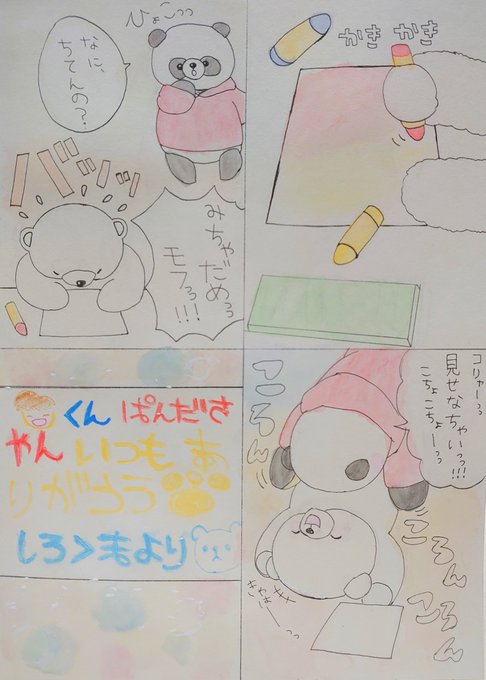 かき かき
ひょこっっ
なに、
ちてんの?
バッ
みちゃだめっっ
モフっっ!!!
コリャーっっ
見せなちゃいっっ!!!
こちょこちょーっっ
ころん
ころん
ころん
くん ぱんださ
やん いつも あ
りがとう
しろくまより